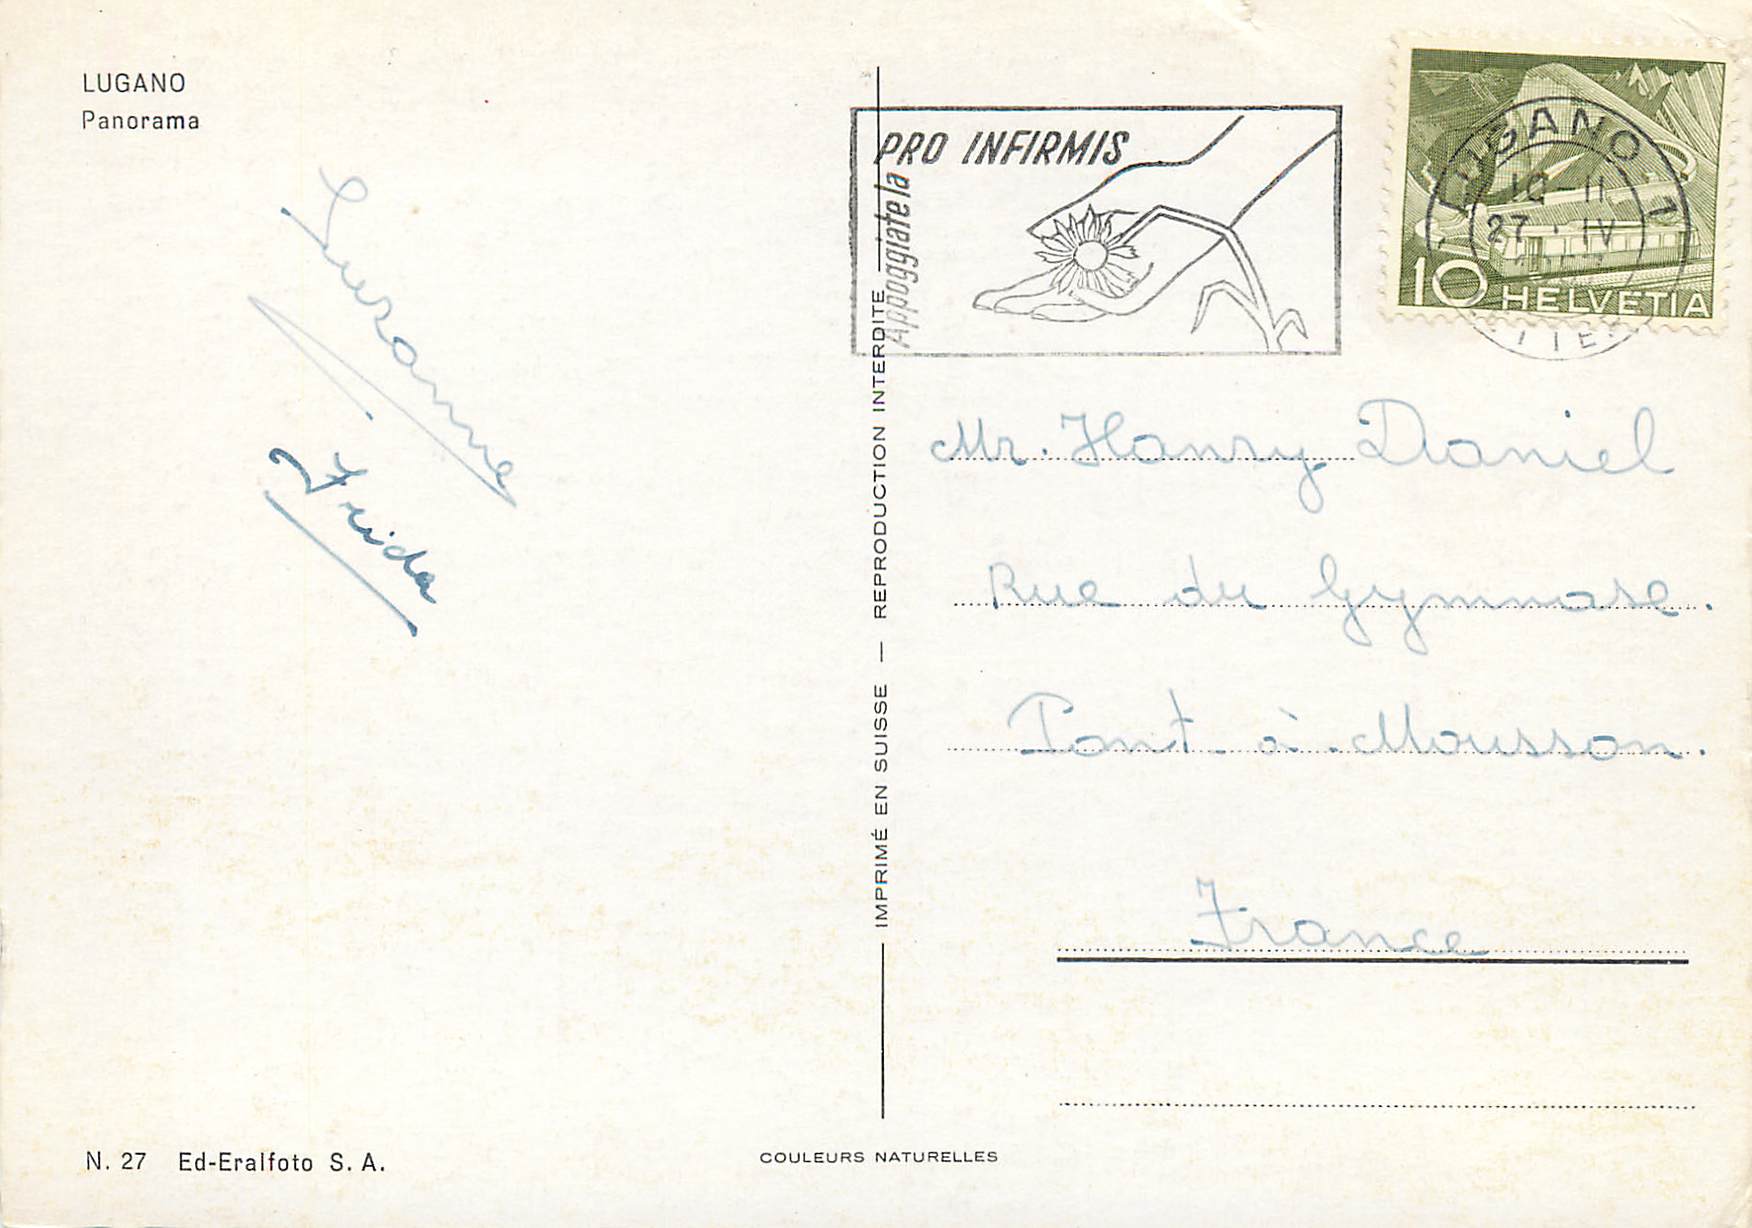 LUGANO
Panorama
PRO INFIRMIS
Appoggiatela
LUGANO 1
10-11
27. IV
10 HELVETIA
Suzanne
Frida
Mr. Hanry Daniel
Rue du Gymnase.
Pont à Mousson.
France
IMPRIMÉ EN SUISSE — REPRODUCTION INTERDITE
N. 27 Ed-Eralfoto S. A.
COULEURS NATURELLES